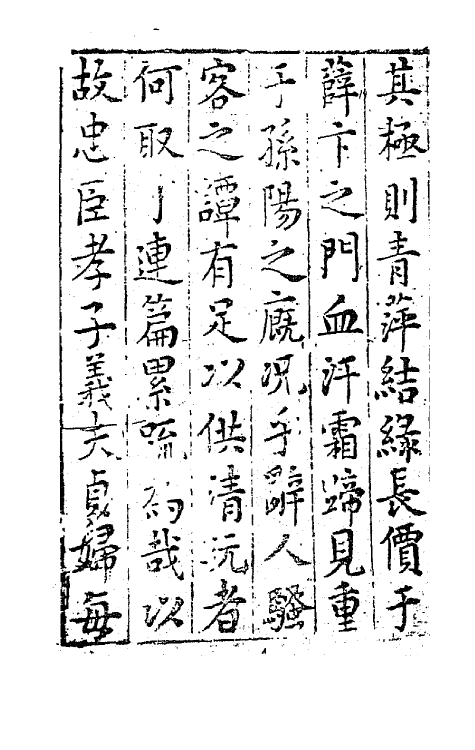 其極則青萍結緑長價于
薛卞之門血汗霜蹄見重
于孫陽之廐况乎辭人騷
客之譚有足以供清玩者
何取于連篇累 哉以
故忠臣孝子義夫貞婦每